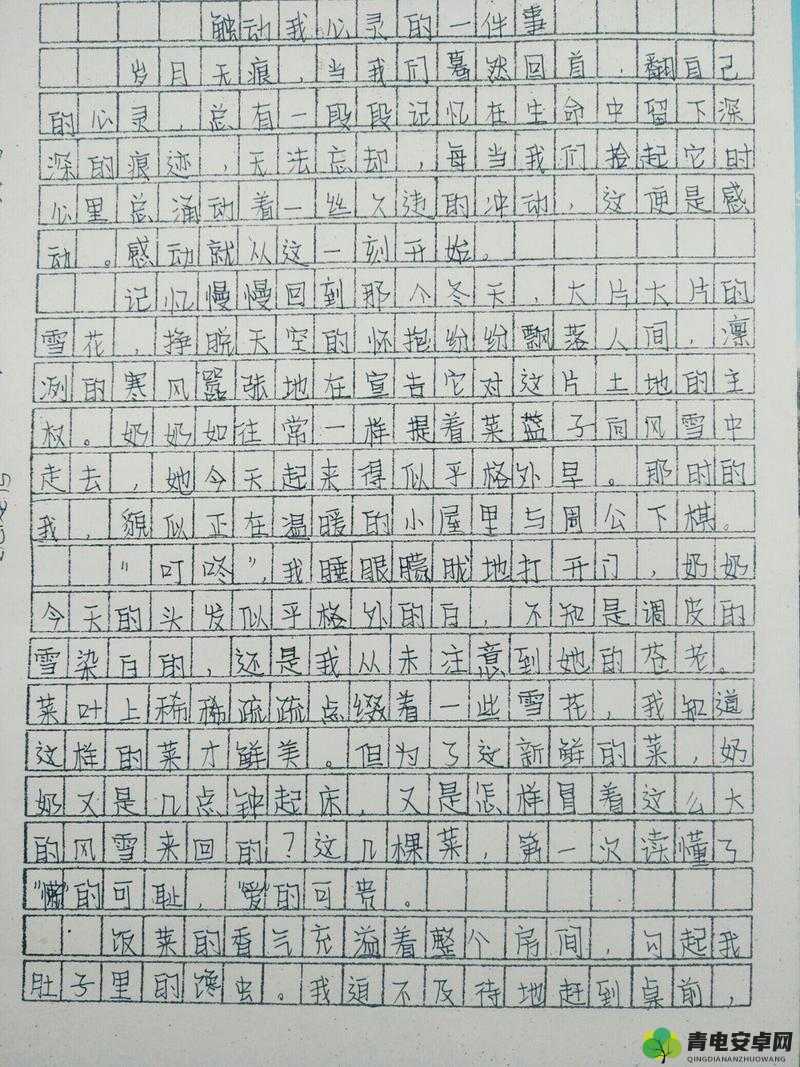 触动我心灵的一件事
岁月无痕，当我们蓦然回首，翻自己
的心灵，总有一段段记忆在生命中留下深
深的痕迹，无法忘却，每当我们捡起它时
心里总涌动着一丝久违的冲动，这便是感
动。感动就从这一刻开始。
记忆慢慢回到那个冬天，大片大片的
雪花，挣脱天空的怀抱纷纷飘落人间，凛
冽的寒风嚣张地在宣告它对这片土地的主
权。奶奶如往常一样提着菜篮子向风雪中
走去，她今天起来得似乎格外早。那时的
我，貌似正在温暖的小屋里与周公下棋。
“叮咚”，我睡眼朦胧地打开门，奶奶
今天的头发似乎格外的白，不知是调皮的
雪染白的，还是我从未注意到她的苍老。
菜叶上稀稀疏疏点缀着一些雪花，我知道
这样的菜才鲜美。但为了这新鲜的菜，奶
奶又是几点钟起床，又是怎样冒着这么大
的风雪来回的？这几棵菜，第一次读懂了
“懒”的可耻，“爱”的可贵。
饭菜的香气充溢着整个房间，勾起我
肚子里的馋虫。我迫不及待地赶到桌前，
青电安卓网
QINGDIANANZHUOWANG